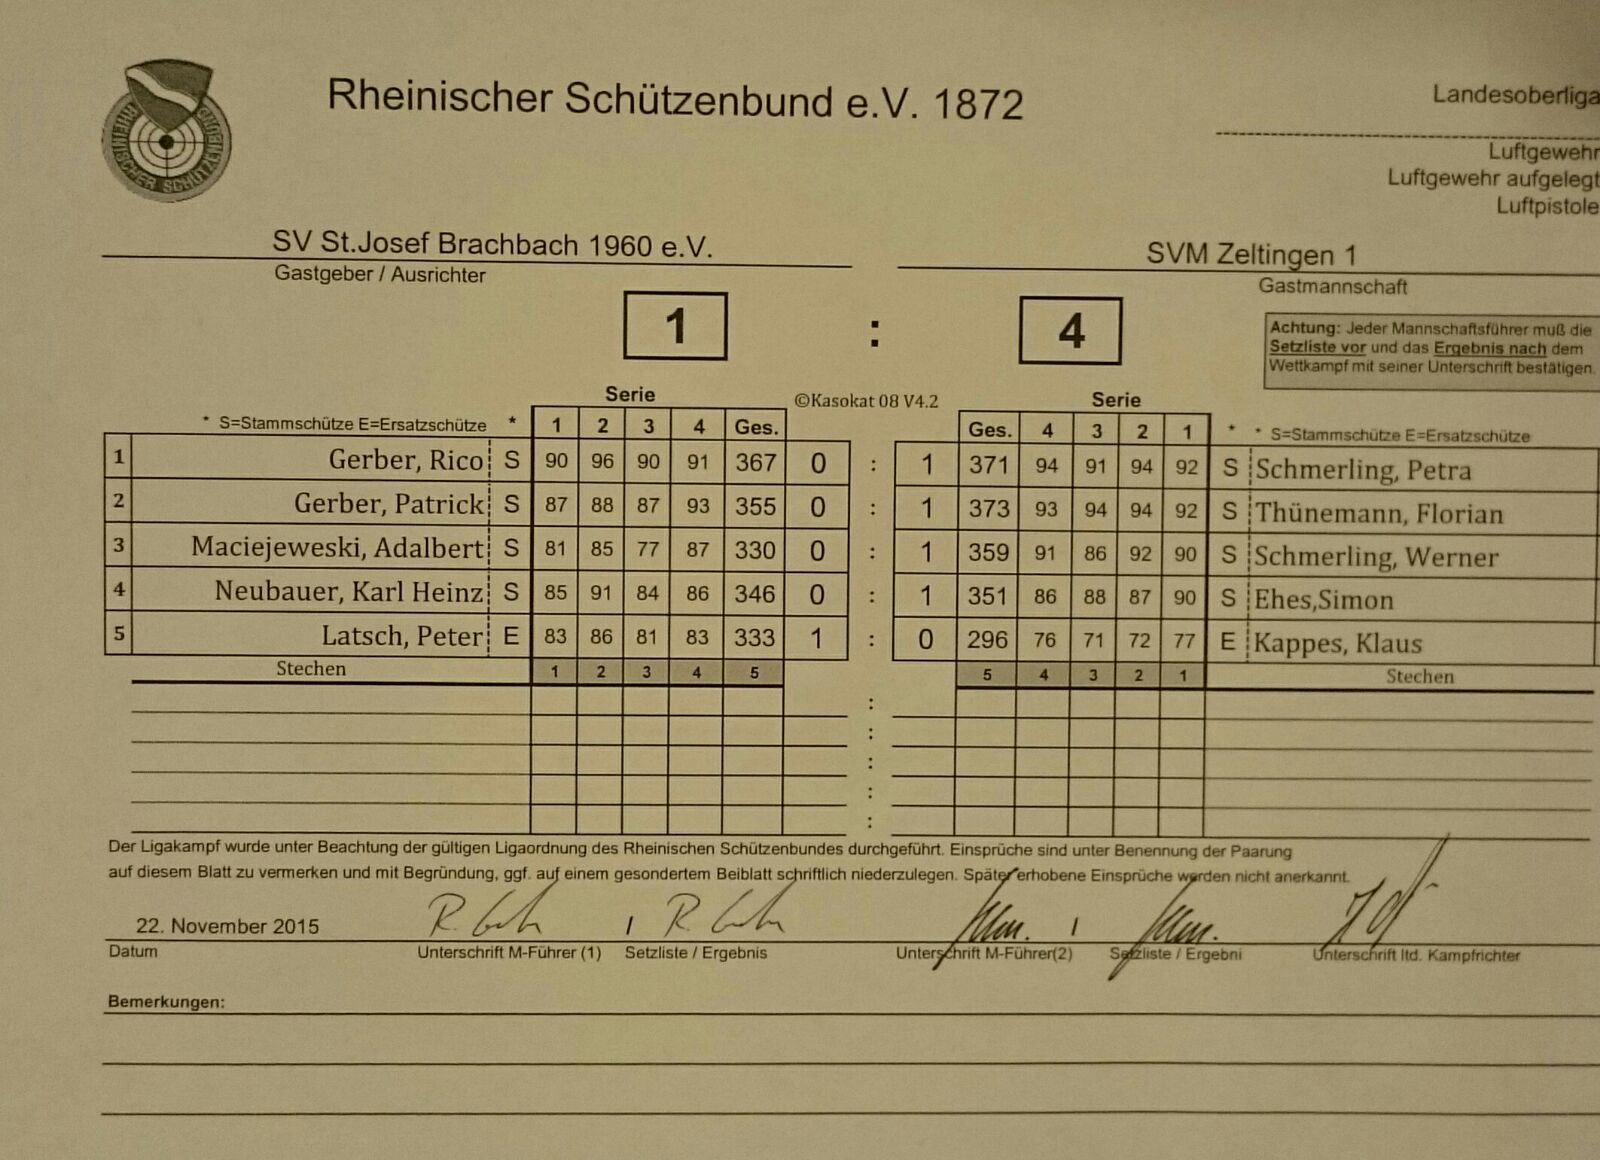 RHEINISCHER SCHÜTZENBUND
Rheinischer Schützenbund e.V. 1872
Landesoberliga
Luftgewehr
Luftgewehr aufgelegt
Luftpistole
SV St.Josef Brachbach 1960 e.V.
SVM Zeltingen 1
Gastgeber / Ausrichter
Gastmannschaft
1 : 4
Achtung: Jeder Mannschaftsführer muß die
Setzliste vor und das Ergebnis nach dem
Wettkampf mit seiner Unterschrift bestätigen.
Serie ©Kasokat 08 V4.2 Serie
* S=Stammschütze E=Ersatzschütze * 1 2 3 4 Ges. Ges. 4 3 2 1 * * S=Stammschütze E=Ersatzschütze
1 Gerber, Rico S 90 96 90 91 367 0 : 1 371 94 91 94 92 S Schmerling, Petra
2 Gerber, Patrick S 87 88 87 93 355 0 : 1 373 93 94 94 92 S Thünemann, Florian
3 Maciejeweski, Adalbert S 81 85 77 87 330 0 : 1 359 91 86 92 90 S Schmerling, Werner
4 Neubauer, Karl Heinz S 85 91 84 86 346 0 : 1 351 86 88 87 90 S Ehes,Simon
5 Latsch, Peter E 83 86 81 83 333 1 : 0 296 76 71 72 77 E Kappes, Klaus
Stechen 1 2 3 4 5 5 4 3 2 1 Stechen
:
:
:
:
:
Der Ligakampf wurde unter Beachtung der gültigen Ligaordnung des Rheinischen Schützenbundes durchgeführt. Einsprüche sind unter Benennung der Paarung
auf diesem Blatt zu vermerken und mit Begründung, ggf. auf einem gesondertem Beiblatt schriftlich niederzulegen. Später erhobene Einsprüche werden nicht anerkannt.
22. November 2015 / /
Datum Unterschrift M-Führer (1) Setzliste / Ergebnis Unterschrift M-Führer(2) Setzliste / Ergebni Unterschrift ltd. Kampfrichter
Bemerkungen: